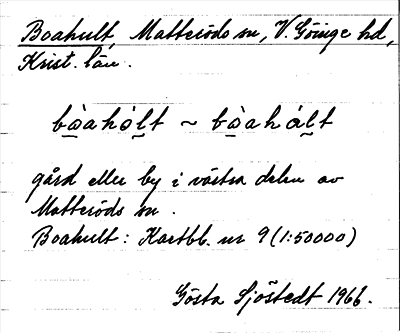 Boahult, Matteröds sn, V. Göinge hd,
Krist. län.
bòahólt ~ bòahált
gård eller by i västra delen av
Matteröds sn.
Boahult: Kartbl. nr 9 (1:50000)
Gösta Sjöstedt 1966.